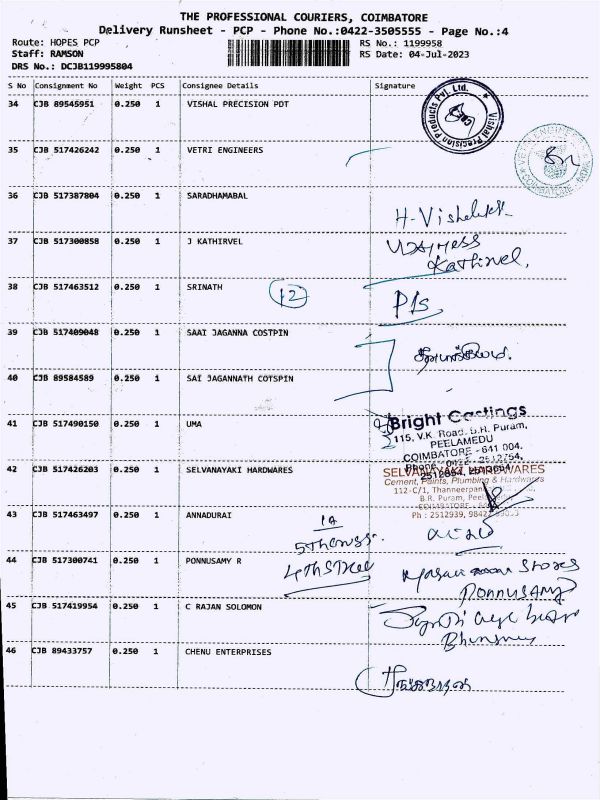 THE PROFESSIONAL COURIERS, COIMBATORE
Delivery Runsheet - PCP - Phone No.:0422-3505555 - Page No.:4
Route: HOPES PCP
RS No.: 1199958
Staff: RAMSON
RS Date: 04-Jul-2023
DRS No.: DCJB119995804
S No Consignment No Weight PCS Consignee Details Signature
34 CJB 89545951 0.250 1 VISHAL PRECISION PDT
Vishal Precision Products Pvt. Ltd.
35 CJB 517426242 0.250 1 VETRI ENGINEERS
COIMBATORE
36 CJB 517387804 0.250 1 SARADHAMABAL
37 CJB 517300858 0.250 1 J KATHIRVEL
Kathirvel,
38 CJB 517463512 0.250 1 SRINATH
12
39 CJB 517409048 0.250 1 SAAI JAGANNA COSTPIN
40 CJB 89584589 0.250 1 SAI JAGANNATH COTSPIN
41 CJB 517490150 0.250 1 UMA
Bright Castings
115, V.K. Road, B.R. Puram,
PEELAMEDU
COIMBATORE - 641 004.
42 CJB 517426203 0.250 1 SELVANAYAKI HARDWARES
SELVANAYAKI HARDWARES
Cement, Paints, Plumbing & Hardwares
112-C/1,
B.R. Puram,
Ph : 2512939,
43 CJB 517463497 0.250 1 ANNADURAI
4th Street
44 CJB 517300741 0.250 1 PONNUSAMY R
Stores
Ponnusamy
45 CJB 517419954 0.250 1 C RAJAN SOLOMON
46 CJB 89433757 0.250 1 CHENU ENTERPRISES